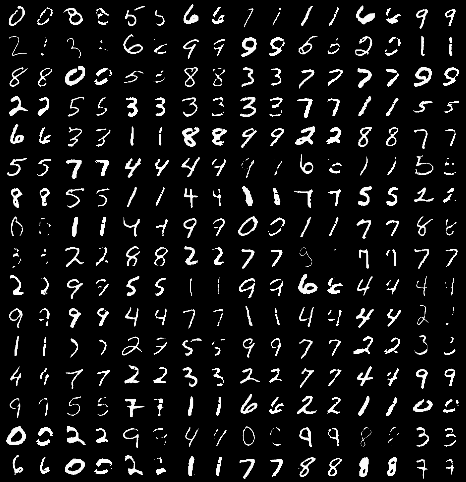 0 0 8 8 5 5 6 6 7 1 1 1 6 6 9 9
2 3 3 6 9 9 9 9 6 6 2 0 1 1
8 8 0 0 5 5 8 8 3 3 7 7 7 7 9 9
2 2 5 5 3 3 3 3 3 3 7 7 1 1 5 5
6 6 3 3 1 1 8 8 9 9 2 2 8 8 7 7
5 5 7 7 4 4 4 4 9 6 1 1 5
8 8 5 5 1 1 4 4 1 1 7 7 5 5 2 2
0 0 1 1 4 4 9 9 0 0 1 1 7 7 8 8
3 3 2 2 8 8 2 2 7 7 9 7 7 7 7
2 2 9 9 5 5 1 1 9 9 6 6 4 4 4 4
9 9 9 9 4 4 7 7 1 1 4 4 4 4 2
1 1 7 7 2 2 5 5 9 9 7 7 2 2 3 3
4 4 7 7 2 2 3 3 2 2 7 7 4 4 9 9
9 9 5 5 7 7 1 1 6 6 2 2 1 1 0 0
0 0 2 2 9 9 4 4 0 0 9 9 8 8 3 3
6 6 0 0 2 2 1 1 7 7 8 8 8 8 7 7